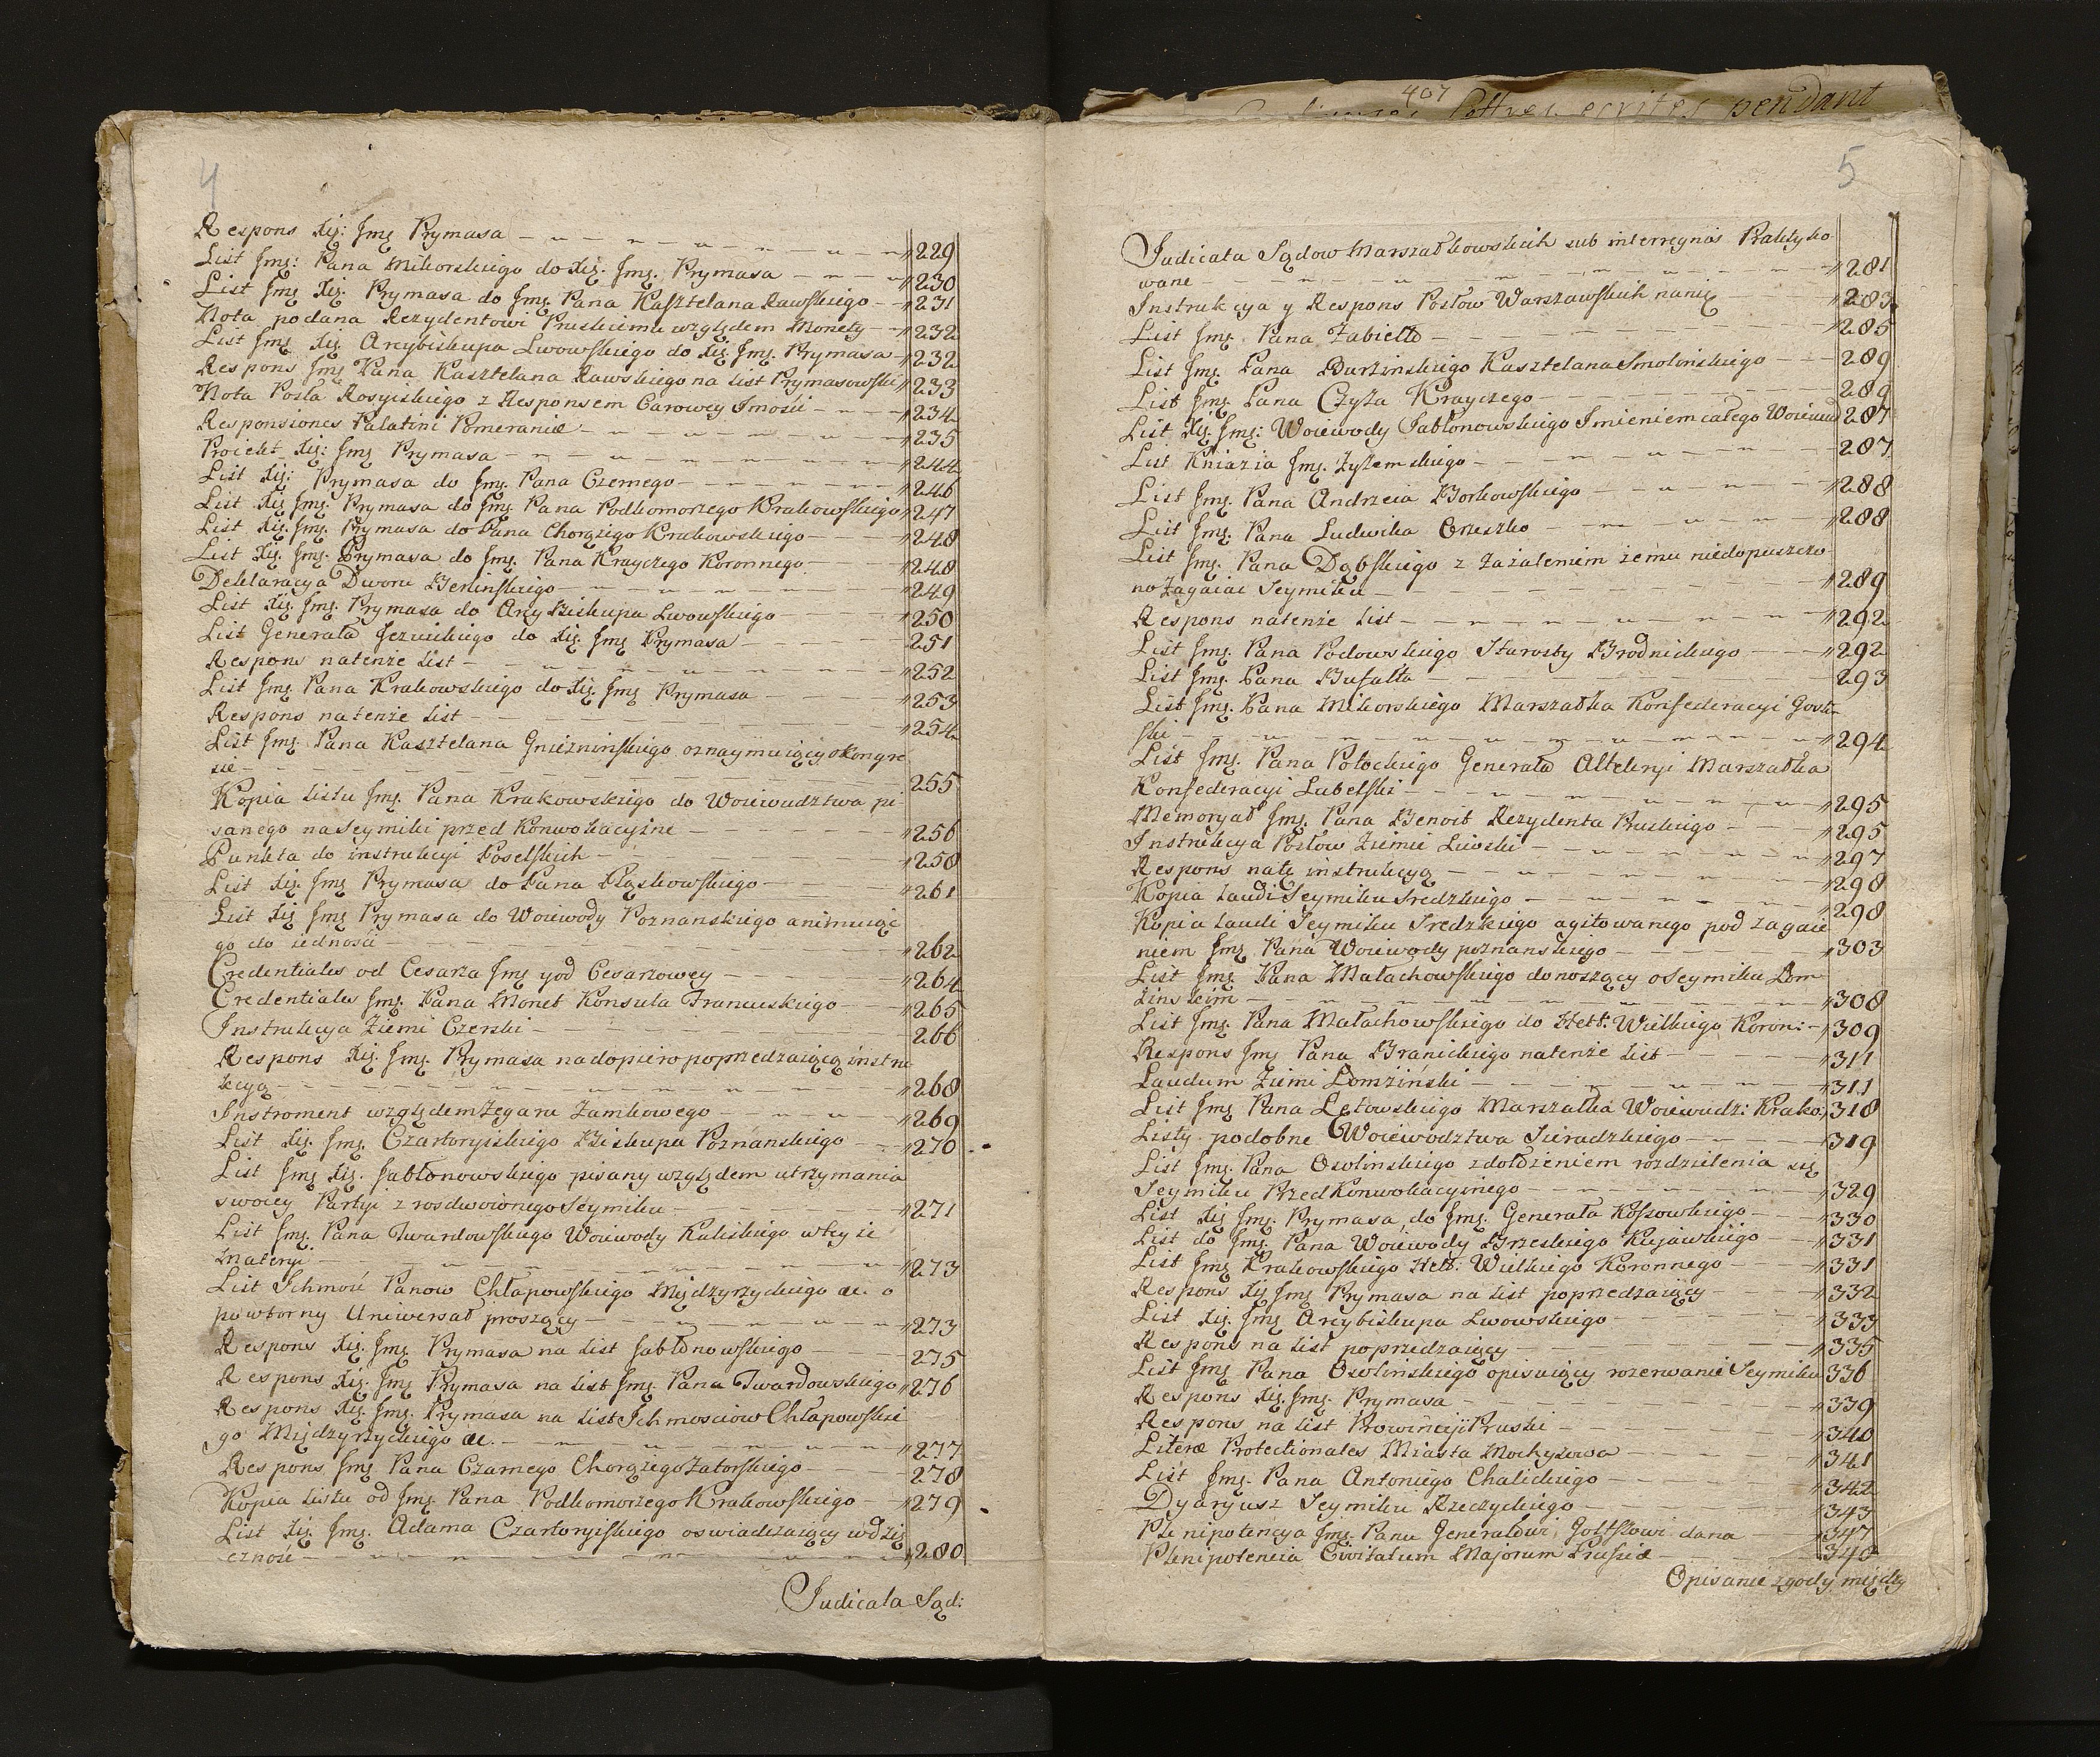 4
Respons Xię: Jmę Prymasa 229
List Jmę: Pana Mikorskiego do Xię. Jmę. Prymasa 230
List Jmę Xię. Prymasa do Jmę. Pana Kasztelana Rawskiego 231
Nota podana Rezydentowi Pruskiemu względem Monety 232
List Jmę Xię Arcybiskupa Lwowskiego do Xię Jmę. Prymasa 232
Respons Jmę Pana Kasztelana Rawskiego na list Prymasowski 233
Nota Posła Rosyiskiego z Responsem Carowey Jmości 234
Responsiones Palatini Pomeraniæ 235
Proiekt Xię: Jmę Prymasa 244
List Xię: Prymasa do Jmę. Pana Czernego 246
List Xię Jmę. Prymasa do Jmę. Pana Podkomorzego Krakowskiego 247
List Xię. Jmę. Prymasa do Pana Chorążego Krakowskiego 248
List Xię. Jmę. Prymasa do Jmę. Pana Krayczego Koronnego 248
Deklaracya Dworu Berlinskiego 249
List Xię. Jmę. Prymasa do Arcy Biskupa Lwowskiego 250
List Generała Jezuickiego do Xię. Jmę Prymasa 251
Respons natenże list 252
List Jmę. Pana Krakowskiego do Xię. Jmę Prymasa 253
Respons natenże list 254
List Jmę. Pana Kasztelana Gnieznińskiego oznaymuiący okongre
sie 255
Kopia listu Jmę. Pana Krakowskiego do Woiewudztwa pi
sanego na Seymiki przed Konwokacyine 256
Punkta do instrukcyi Poselskich 258
List Xię. Jmę Prymasa do Pana Pląskowskiego 261
List Xię Jmę Prymasa do Woiewody Poznanskiego animuiąc
go do iedności 262
Credentiales od Cesarza Jmę yod Cesarzowey 264
Credentiales Jmę. Pana Monet Konsula Francuskiego 265
Instrukcya Ziemi Czerski 266
Respons Xię. Jmę. Prymasa nadopiero poprzedzaiącą instru
kcyą 268
Instroment względem Zegaru Zamkowego 269
List Xię. Jmę. Czartoryiskiego Biskupa Poznanskiego 270
List Jmę Xię. Jabłonowskiego pisany względem utrzymania
swoiey Partyi z rosdwoionego Seymiku 271
List Jmę. Pana Twardowskiego Woiewody Kaliskiego wtey że
materyi 273
List Ichmość Panow Chłapowskiego Międzyrzyckiego &c. o
powtorny Uniwersał proszący 273
Respons Xię. Jmę. Prymasa na list Jabłonowskiego 275
Respons Xię. Jmę Prymasa na list Jmę. Pana Twardowskiego 276
Respons Xię. Jmę. Prymasa na list Ichmosciow Chłapowskie
go Międzyrzyckiego &c. 277
Respons Jmę Pana Czarnego Chorążego Zatorskiego 278
Kopia listu od Jmę. Pana Podkomorzego Krakowskiego 279
List Xię. Jmę. Adama Czartoryiskiego oswiadczaiący wdzię
czność 280
Judicata Sąd:
407
lettres ecrites pendant
5
Judicata Sądow Marszałkowskich sub interregnis Praktyko
wane 281
Instrukcya y Respons Posłow Warszawskich nanię 283
List Jmę. Pana Zabiełło 285
List Jmę. Pana Burzinskiego Kasztelana Smolinskiego 289
List Jmę Pana Czyża Krayczego 289
List Xię. Jmę: Woiewody Jabłonowskiego Imieniem całego Woiewud 287
List Kniazia Jmę. Żyżemskiego 287
List Jmę. Pana Andrzeia Borkowskiego 288
List Jmę. Pana Ludwika Oreszko 288
List Jmę. Pana Dąbskiego z zażaleniem żemu niedopuszczo
no Zagaiac Seymiku 289
Respons natenże list 292
List Jmę. Pana Podowskiego Starosty Brodnickiego 292
List Jmę. Pana Bufałła 293
List Jmę. Pana Mikorskiego Marszałka Konfederacyi Gosty
ski 294
List Jmę. Pana Potockiego Generała Altyleryi Marszałka
Konfederacyi Lubelski 295
Memoryał Jmę. Pana Benoit Rezydenta Pruskiego 295
Instrukcya Posłow Ziemie Liwski 297
Respons natę instrukcyą 298
Kopia laudi Seymiku Sredzkiego 298
Kopia laudi Seymiku Sredzkiego agitowanego pod zagaie
niem Jmę Pana Woiewody poznanskiego 303
List Jmę. Pana Małachowskiego donoszący oSeymiku Łom
żinskim 308
List Jmę. Pana Małachowskiego do Hett. Wielkiego Koron: 309
Respons Jmę Pana Branickiego natenże list 311
Laudum Ziemi Łomżiński 311
List Jmę Pana Lętowskiego Marszałka Woiewudz: Krako: 318
Listy podobne Woiewodztwa Sieradzkiego 319
List Jmę. Pana Osolinskiego zdołożeniem rozdzielenia się
Seymiku Przed Konwokacyinego 329
List Xię Jmę. Prymasa do Jmę. Generała Koszowskiego 330
List do Jmę. Pana Woiewody Brzeskiego Kujawskiego 331
List Jmę Krakowskiego Hett. Wielkiego Koronnego 331
Respons Xię Jmę Prymasa na list poprzedzaiący 332
List Xię. Jmę Arcybiskupa Lwowskiego 333
Respons na list poprzedzaiący 335
List Jmę Pana Osolinskiego opisuiący rozerwanie Seymiku 336
Respons Xię. Jmę. Prymasa 339
Respons na list Prowincyi Pruski 340
Literæ Protectionales Miasta Mochylowa 341
List Jmę. Pana Antoniego Chalickiego 342
Dyaryusz Seymiku Rzeczyckiego 343
Plenipotencya Jmę. Panu Generałowi Goltzowi dana 347
Plenipotencia Civitatum Majorum Prussiæ 348
Opisanie zgody między